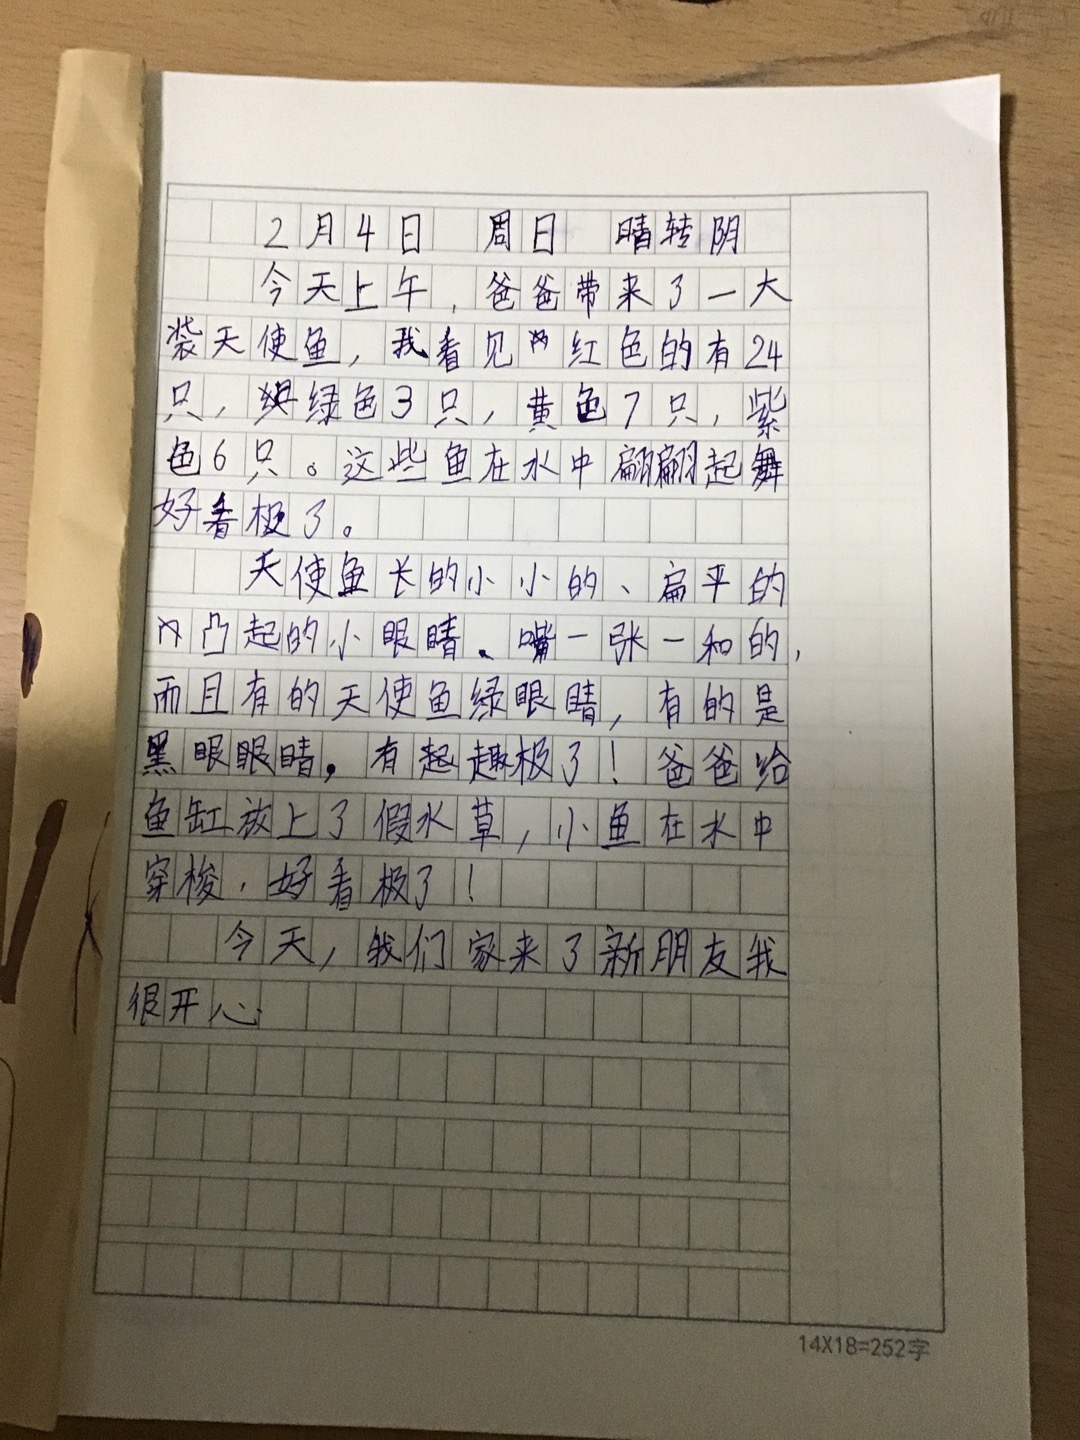 2月4日 周日 晴转阴
今天上午，爸爸带来了一大
装天使鱼，我看见红色的有24
只，绿色3只，黄色7只，紫
色6只。这些鱼在水中翩翩起舞
好看极了。
天使鱼长的小小的、扁平的
凸起的小眼睛。嘴一张一和的，
而且有的天使鱼绿眼睛，有的是
黑眼眼睛，有起趣极了！爸爸给
鱼缸放上了假水草，小鱼在水中
穿梭，好看极了！
今天，我们家来了新朋友我
很开心.
14X18=252字